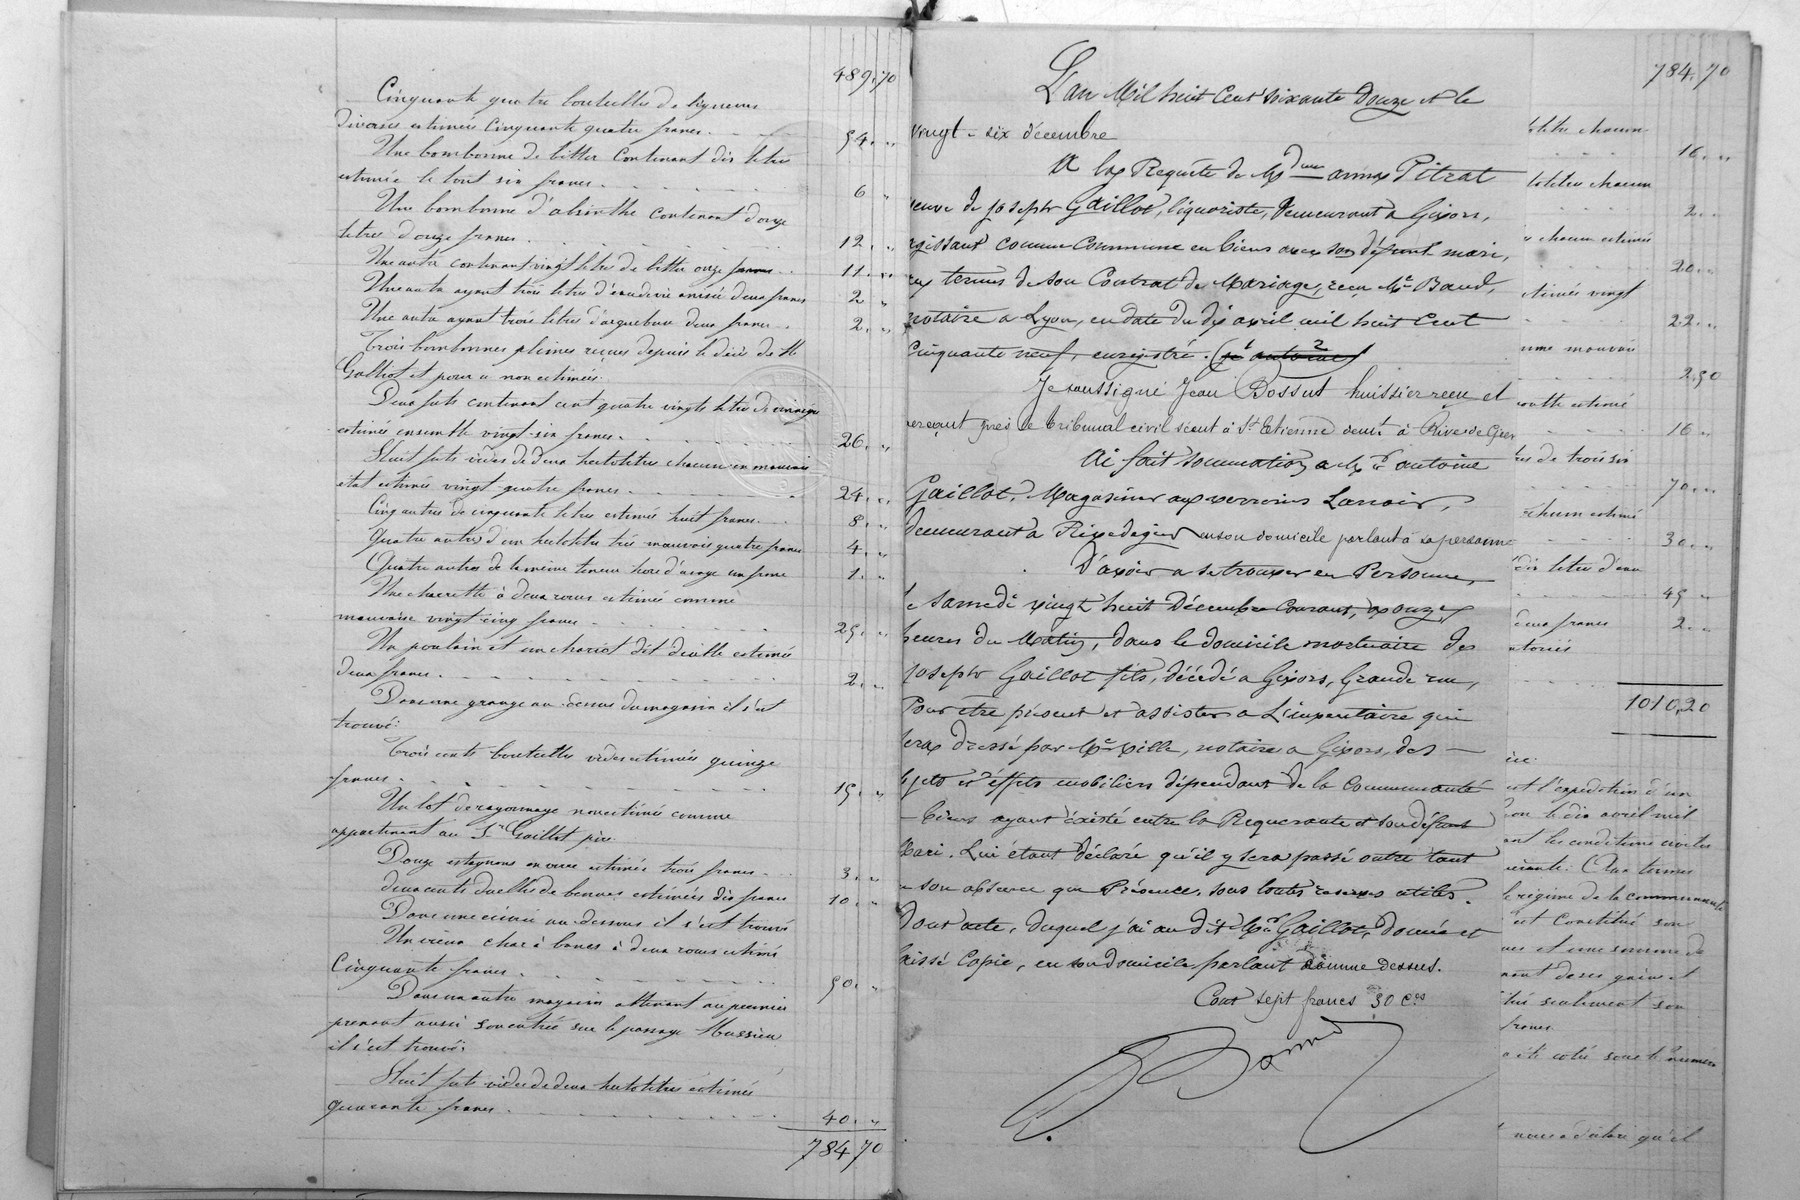 489. 70
Cinquante quatre bouteilles de liqueurs
diverses estimées cinquante quatre francs. 54. "
Une bombonne de bitter contenant dix litres
estimée le tout six francs. 6 "
Une bombonne d'absinthe contenant douze
litres douze francs 12. "
Une autre contenant vingt litres de bitter onze francs 11. "
Une autre ayant trois litres d'eau de vie anisée deux francs 2 "
Une autre ayant trois litres d'arquebuse deux francs. 2. "
Trois bombonnes pleines reçues depuis le décès de M
Gaillot et pour ce non estimées.
Deux futs contenant cent quatre vingts litres de vinaigre
estimés ensemble vingt-six francs. 26. "
Huit futs vides de deux hectolitres chacun en mauvais
état estimés vingt quatre francs. 24. "
Cinq autres de cinquante litres estimés huit francs. 8. "
Quatre autres d'un hectolitre très mauvais quatre francs 4. "
Quatre autres de la même teneur hors d'usage un franc 1. "
Une charrette à deux roues estimée comme
mauvaise vingt-cinq francs 25. "
Un poulain et un chariot dit diable estimés
deux francs. 2. "
Dans une grange au-dessus du magasin il s'est
trouvé:
Trois cents bouteilles vides estimées quinze
francs. 15. "
Un lot de rayonnage non estimé comme
appartenant au Sr Gaillot père
Douze estagnons en verre estimés trois francs. 3. "
Deux cents douelles de bennes estimées dix francs 10. "
Dans une écurie au-dessous il s'est trouvé
Un vieux char à bancs à deux roues estimé
Cinquante francs. 50. "
Dans un autre magasin attenant au premier
prenant aussi son entrée sur le passage Mussieu
il s'est trouvé:
Huit futs vides de deux hectolitres estimés
quarante francs. 40. "
784, 70
L'an Mil huit Cent soixante Douze et le
vingt-six décembre
A la Requête de Mdme anna Pitrat
veuve de joseph Gaillot, liquoriste, Demeurant a Givors,
agissant comme Commune en biens avec son défunt mari,
aux termes de son Contrat de Mariage, reçu Me Baud,
notaire a Lyon, en date du dix avril mil huit Cent
Cinquante neuf, enregistré.
Je soussigné Jean Bossut huissier reçu et
exerçant près le tribunal civil séant à St Etienne demt à Rive de Gier
Ai fait sommation a Mr antoine
Gaillot, Magasinier aux verreries Lanoir,
demeurant a Rivedegier en son domicile parlant à sa personne
D'avoir a se trouver en Personne,
le samedi vingt huit Décembre Courant, a onze
heures du Matin, dans le domicile mortuaire de
joseph Gaillot fils, décédé a Givors, Grande rue,
Pour être présent et assister a L'inventaire qui
sera dressé par Me ville, notaire a Givors, des
objets et effets mobiliers dépendant de la Communauté
biens ayant existé entre la Requérante et son défunt
Mari. Lui étant déclaré qu'il y sera passé outre tant
en son absence que Présence, sous toutes reserves utiles.
Dont acte, duquel j'ai au dit Mr Gaillot, donné et
laissé Copie, en son domicile parlant comme dessus.
Cout sept francs 30 ces
784. 70
litre chacun
16. "
hectolitres chacun
2. "
chacun estimés
20. "
estimés vingt
22. "
comme mauvais
2.50
estimé
16 "
de trois six
70. "
chacun estimé
30. "
dix litres d'eau
45 "
deux francs 2. "
1010,20
est l'expédition d'un
le dix avril mil
les conditions civiles
Aux termes
le régime de la communauté
est constitué son
et une somme de
seulement son
francs
a été cotée sous le numéro
nous a déclaré qu'il